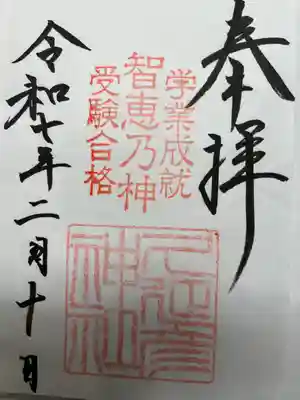 奉拝
学業成就
智恵乃神
受験合格
令和七年二月十日